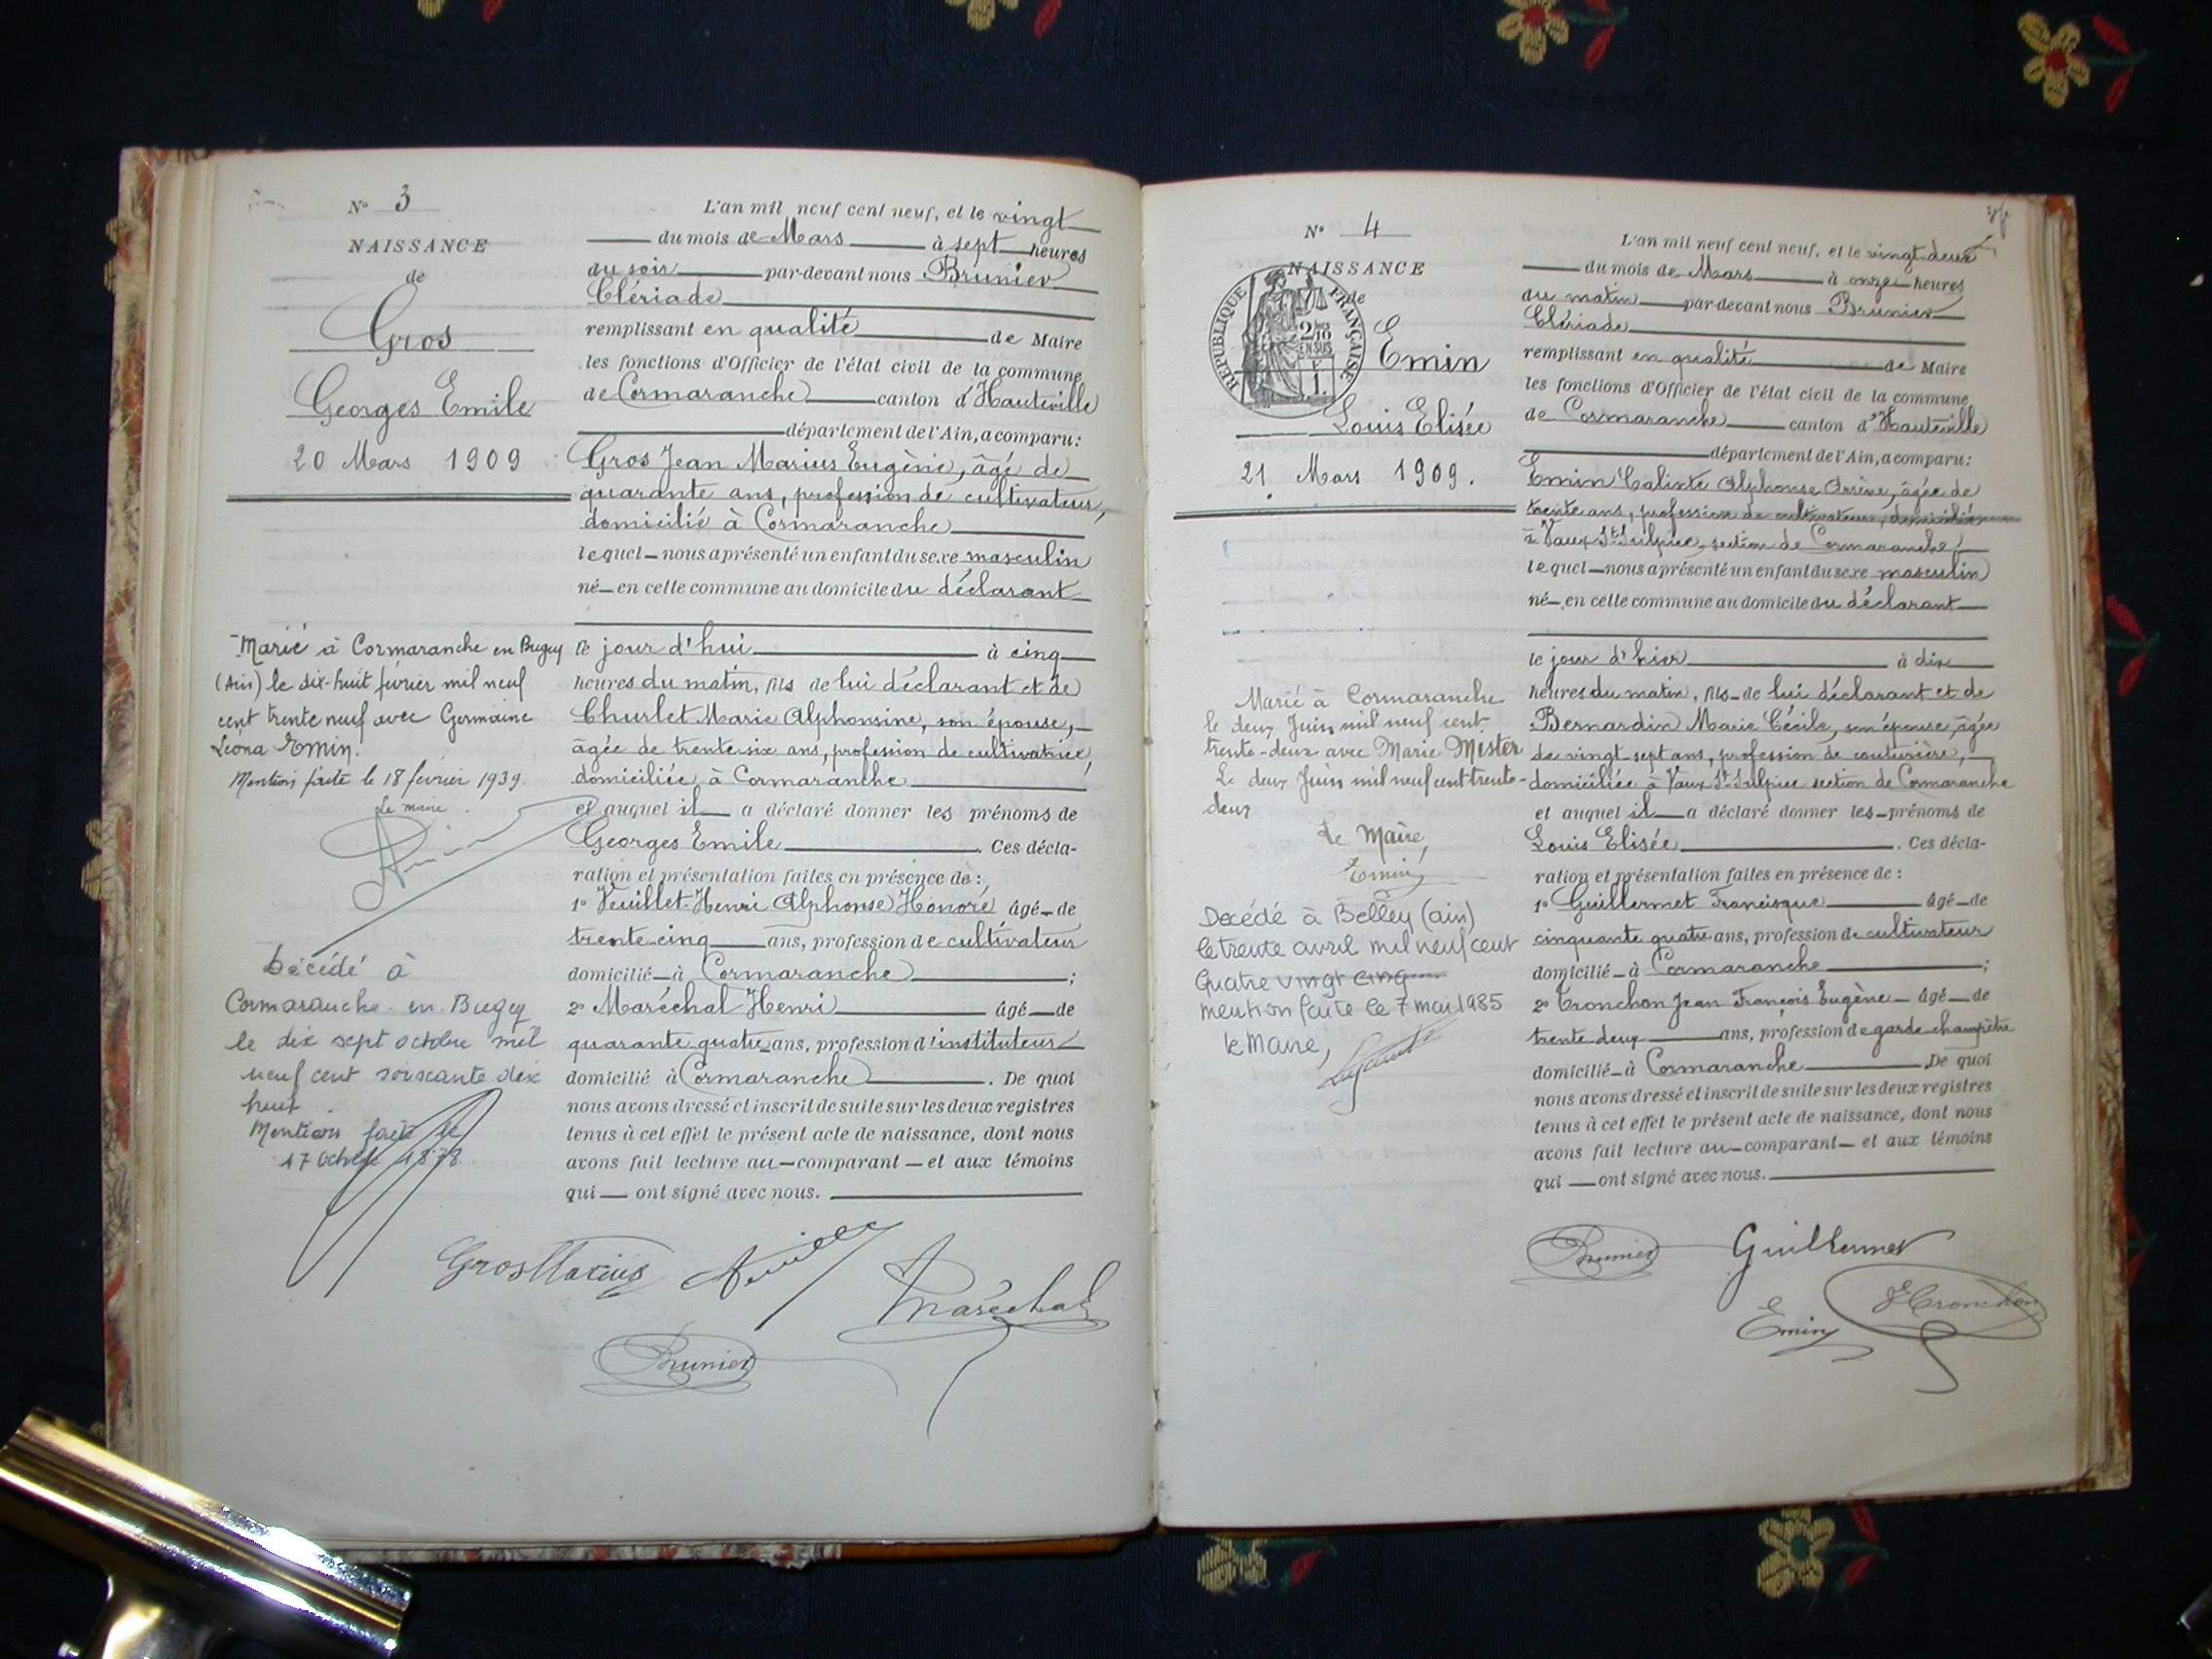 N° 3
NAISSANCE
de
Gros
Georges Emile
20 Mars 1909
Marié à Cormaranche en Bugey
(Ain) le dix-huit février mil neuf
cent trente neuf avec Germaine
Léona Emin.
Mention faite le 18 février 1939.
Le maire
Décédé à
Cormaranche en Bugey
le dix sept octobre mil
neuf cent soixante dix
huit.
Mention faite le
17 octobre 1978
L'an mil neuf cent neuf, et le vingt
du mois de Mars à sept heures
du soir par-devant nous Brunier
Clériade
remplissant en qualité de Maire
les fonctions d'Officier de l'état civil de la commune
de Cormaranche canton d'Hauteville
département de l'Ain, a comparu:
Gros Jean Marius Eugène, âgé de
quarante ans, profession de cultivateur,
domicilié à Cormaranche
lequel nous a présenté un enfant du sexe masculin
né en cette commune au domicile du déclarant
le jour d'hui à cinq
heures du matin, fils de lui déclarant et de
Churlet Marie Alphonsine, son épouse,
âgée de trente-six ans, profession de cultivatrice,
domiciliée à Cormaranche
et auquel il a déclaré donner les prénoms de
Georges Emile. Ces décla-
ration et présentation faites en présence de :
1° Veuillet Henri Alphonse Honoré âgé de
trente-cinq ans, profession de cultivateur
domicilié à Cormaranche ;
2° Maréchal Henri âgé de
quarante quatre ans, profession d'instituteur
domicilié à Cormaranche. De quoi
nous avons dressé et inscrit de suite sur les deux registres
tenus à cet effet le présent acte de naissance, dont nous
avons fait lecture au comparant et aux témoins
qui ont signé avec nous.
Gros Marius Veuillet Maréchal
Brunier
N° 4
NAISSANCE
de
RÉPUBLIQUE FRANÇAISE
2/10
EN SUS
F
1.
Emin
Louis Elisée
21 Mars 1909.
Marié à Cormaranche
le deux Juin mil neuf cent
trente-deux avec Marie Mister
Le deux Juin mil neuf cent trente-
deux
Le Maire,
Emin
Décédé à Belley (ain)
le trente avril mil neuf cent
quatre vingt cinq
mention faite le 7 mai 1985
le Maire,
L'an mil neuf cent neuf, et le vingt-deux
du mois de Mars à onze heures
du matin par-devant nous Brunier
Clériade
remplissant en qualité de Maire
les fonctions d'Officier de l'état civil de la commune
de Cormaranche canton d'Hauteville
département de l'Ain, a comparu:
Emin Calixte Alphonse Arsène, âgée de
trente ans, profession de cultivateur, domicilié
à Vaux St Sulpice, section de Cormaranche,
lequel nous a présenté un enfant du sexe masculin
né en cette commune au domicile du déclarant
le jour d'hier à dix
heures du matin, fils de lui déclarant et de
Bernardin Marie Cécile, son épouse, âgée
de vingt-sept ans, profession de couturière,
domiciliée à Vaux St Sulpice section de Cormaranche
et auquel il a déclaré donner les prénoms de
Louis Elisée. Ces décla-
ration et présentation faites en présence de :
1° Guillermet Francisque âgé de
cinquante quatre ans, profession de cultivateur
domicilié à Cormaranche ;
2° Tronchon Jean François Eugène âgé de
trente deux ans, profession de garde-champêtre
domicilié à Cormaranche. De quoi
nous avons dressé et inscrit de suite sur les deux registres
tenus à cet effet le présent acte de naissance, dont nous
avons fait lecture au comparant et aux témoins
qui ont signé avec nous.
Brunier Guillermet
Emin Tronchon